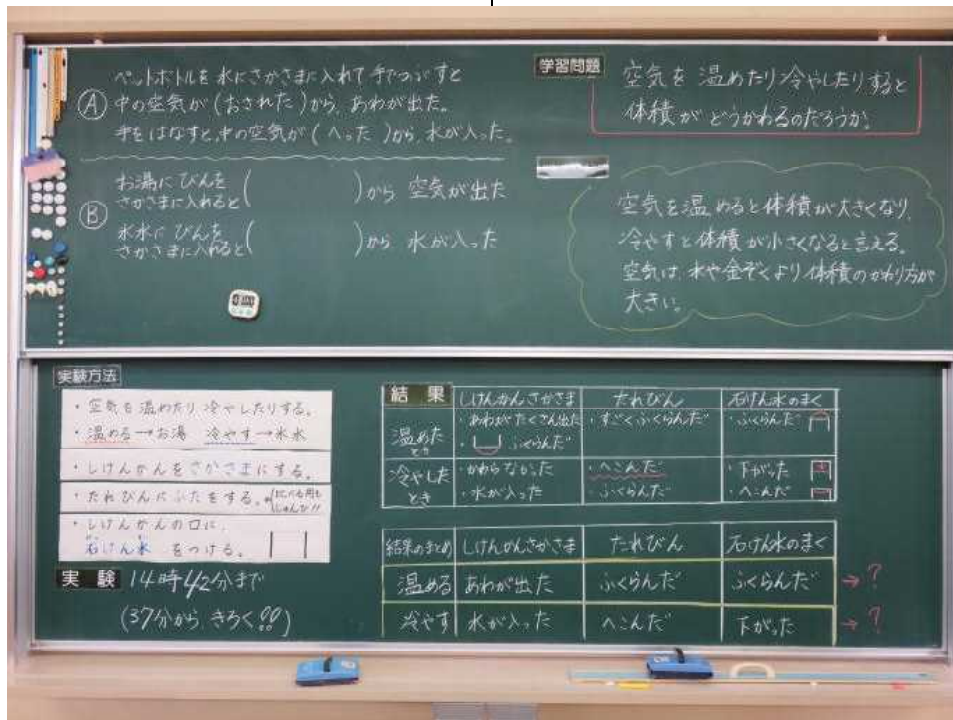 ペットボトルを水にさかさまに入れて手でつぶすと
Ⓐ 中の空気が(おされた)から、あわが出た。
手をはなすと、中の空気が(へった)から、水が入った。
お湯にびんを
さかさまに入れると( )から 空気が出た
Ⓑ
氷水にびんを
さかさまに入れると( )から 水が入った
学習問題
空気を温めたり冷やしたりすると
体積がどうかわるのだろうか。
空気を温めると体積が大きくなり、
冷やすと体積が小さくなると言える。
空気は水や金ぞくより体積のかわり方が
大きい。
実験方法
・空気を温めたり冷やしたりする。
・温める→お湯 冷やす→氷水
・しけんかんをさかさまにする。
・たれびんにふたをする。
・しけんかんの口に
石けん水をつける。
実験 14時42分まで
(37分から きろく!!)
結果 しけんかんさかさま たれびん 石けん水のまく
温めたとき ・あわがたくさん出た ・すごくふくらんだ ・ふくらんだ
・ ふくらんだ
冷やしたとき ・かわらなかった ・へこんだ ・下がった
・水が入った ・ふくらんだ ・へこんだ
結果のまとめ しけんかんさかさま たれびん 石けん水のまく
温める あわが出た ふくらんだ ふくらんだ →?
冷やす 水が入った へこんだ 下がった →?